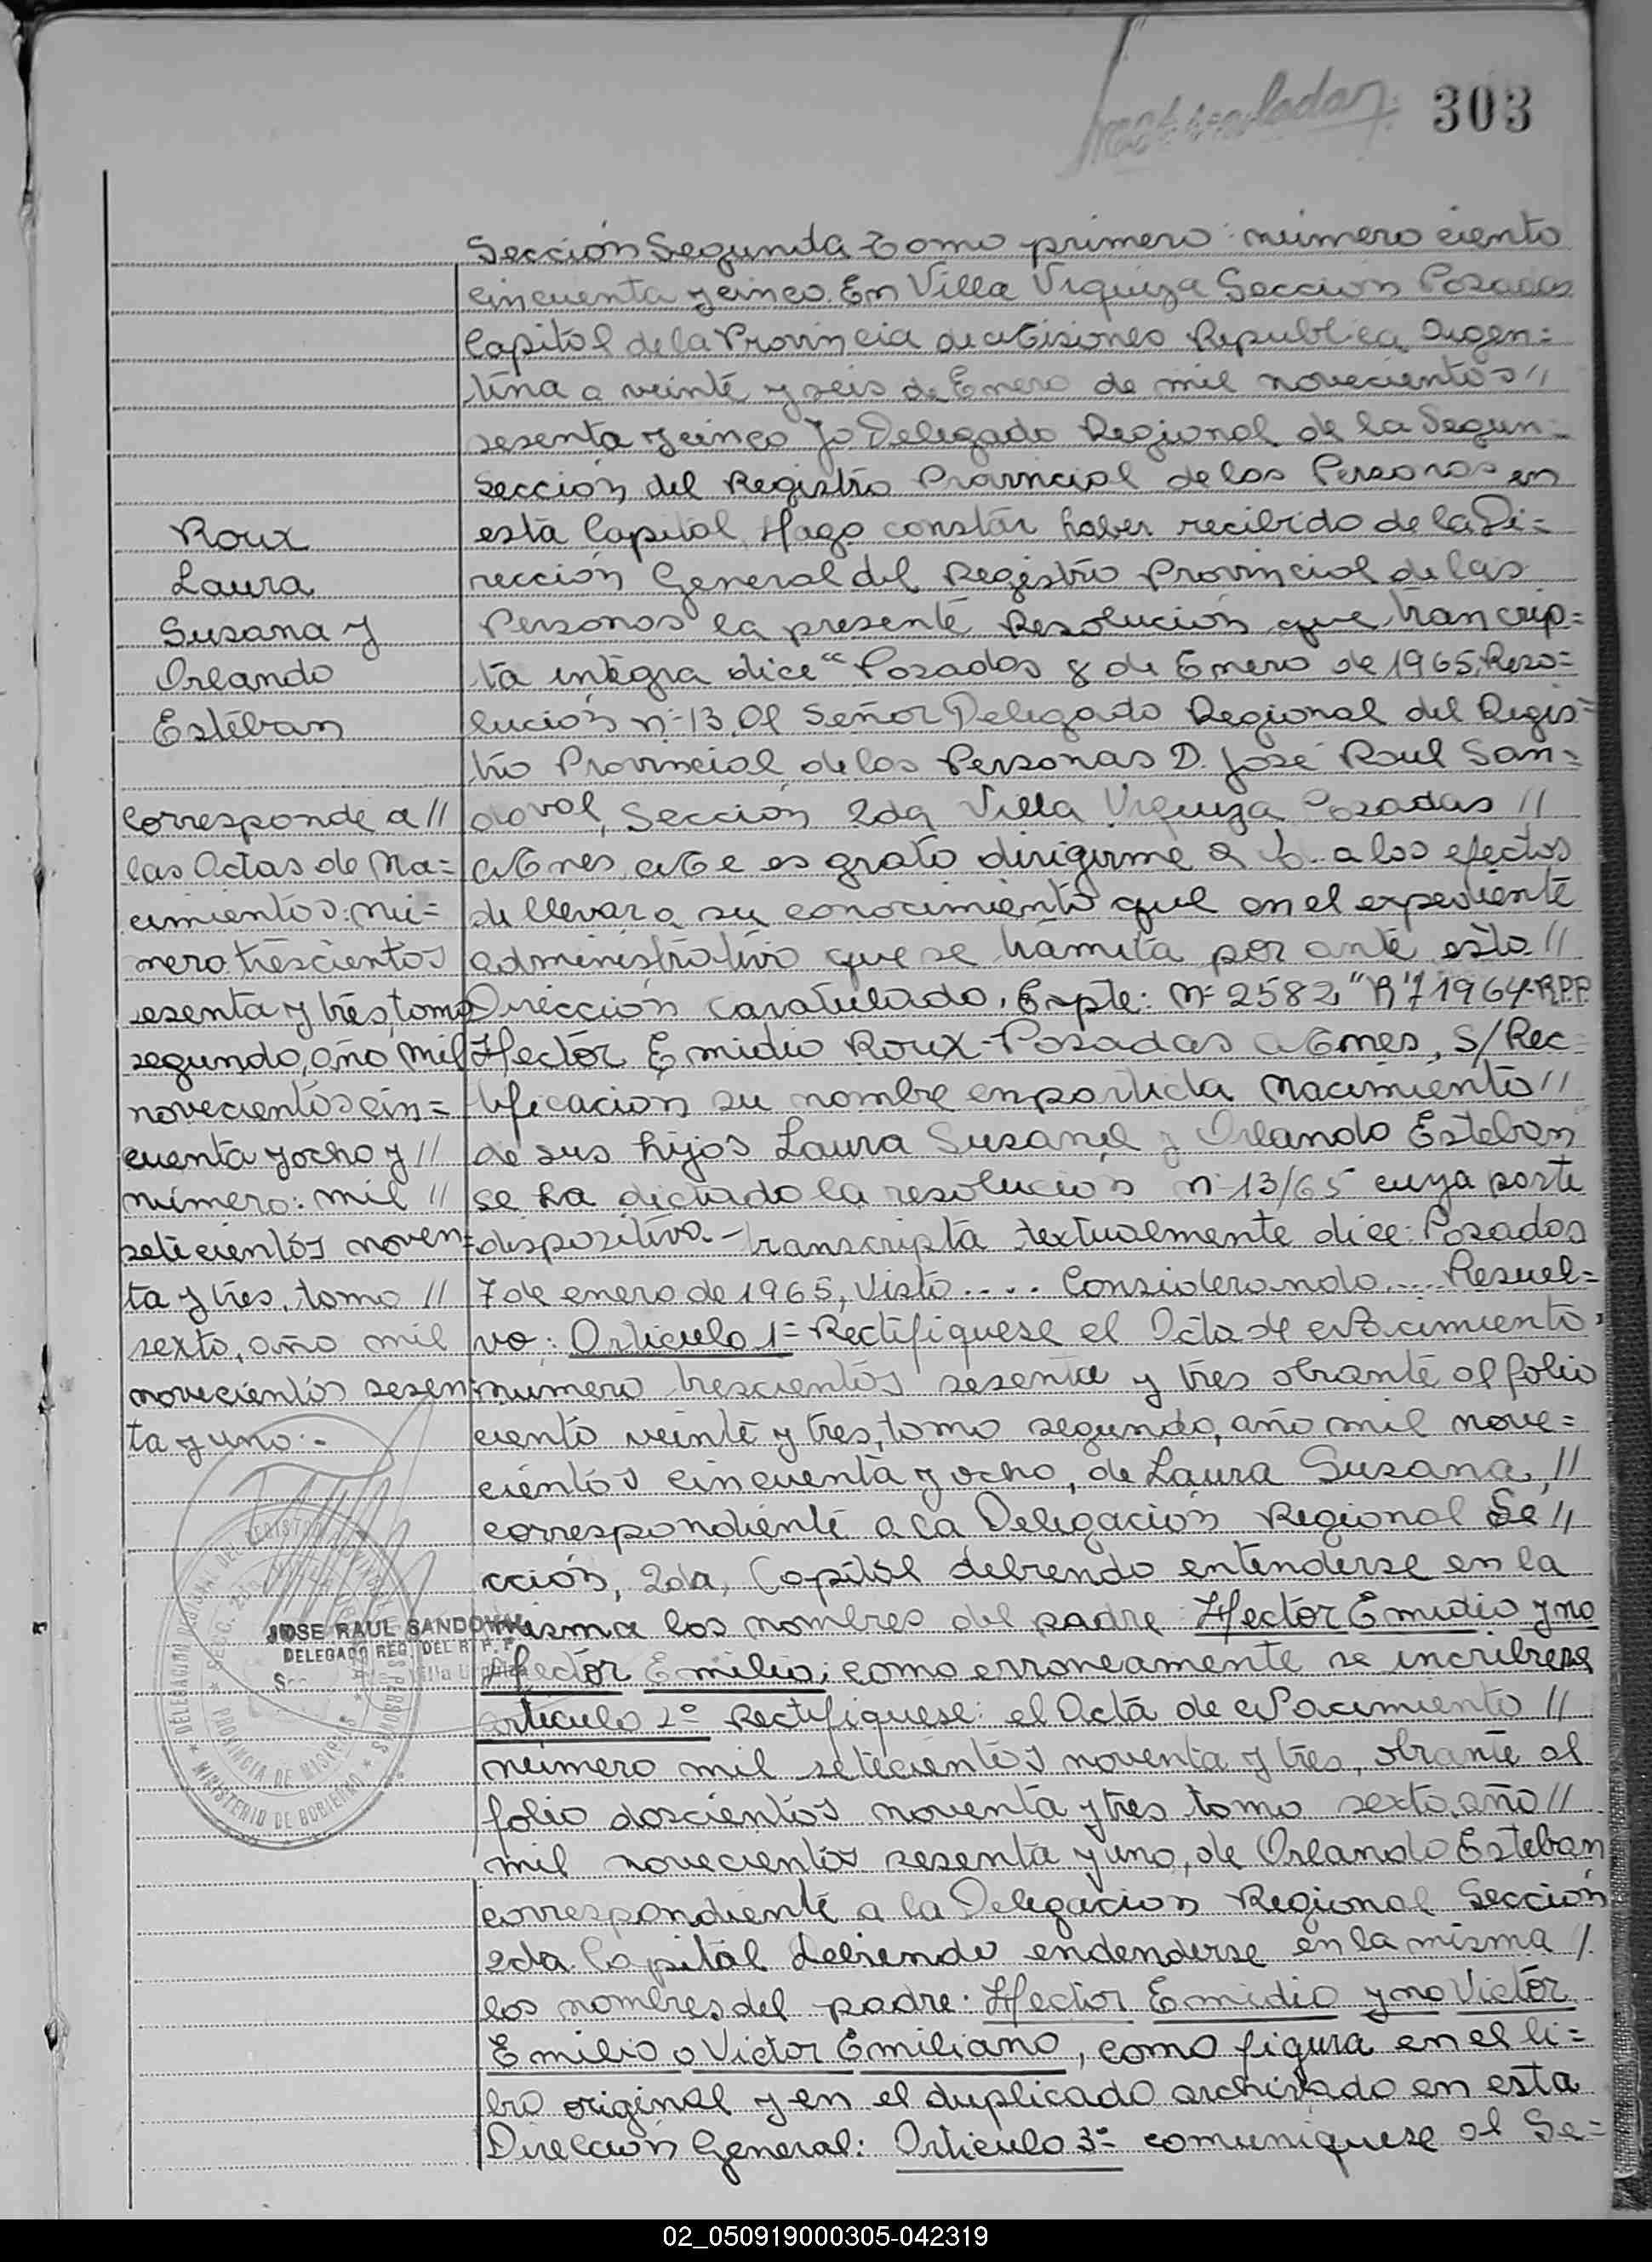 303
Sección Segunda Tomo primero: número ciento
cincuenta y cinco. En Villa Urquiza Sección Posadas
Capital de la Provincia de Misiones Republica Argen=
tina a veinte y seis de Enero de mil novecientos //
sesenta y cinco Yo Delegado Regional de la Segun=
Sección del Registro Provincial de las Personas en
esta Capital, Hago constar haber recibido de la Di=
rección General del Registro Provincial de las
Personas la presente Resolución que trancrip=
ta integra dice "Posadas 8 de Enero de 1965, Reso=
lución nº 13 Al Señor Delegado Regional del Regis=
tro Provincial de las Personas D. José Raul San=
doval, Sección 2da Villa Urquiza Posadas //
Mnes Me es grato dirigirme a U. a los efectos
de llevar a su conocimiento que en el expediente
administrativo que se tramita por ante esta //
Dirección caratulado, Expte: Nº 2582, "R", 1964-R.P.P.
Hector Emidio Roux-Posadas Mnes, S/Rec=
tificación su nombre en partida Nacimiento //
de sus hijos Laura Susana y Orlando Esteban
se ha dictado la resolución nº 13/65 cuya parte
dispositiva - transcripta textualmente dice: Posadas
7 de enero de 1965, Visto .... Considerando .... Resuel=
vo: Articulo 1= Rectifiquese el Acta de Nacimiento,
numero trescientos sesenta y tres obrante al folio
ciento veinte y tres, tomo segundo, año mil nove=
cientos cincuenta y ocho, de Laura Susana, //
correspondiente a la Delegación Regional Se //
cción, 2da, Capital debiendo entenderse en la
misma los nombres del padre Hector Emidio y no
Hector Emilio, como erroneamente se incribiese
articulo 2º Rectifiquese: el Acta de Nacimiento //
número mil setecientos noventa y tres, obrante al
folio doscientos noventa y tres tomo sexto, año //
mil novecientos sesenta y uno, de Orlando Esteban
correspondiente a la Delegación Regional Sección
2da Capital debiendo endenderse en la misma /.
los nombres del padre: Hector Emidio y no Victor
Emilio o Victor Emiliano, como figura en el li=
bro original y en el duplicado archivado en esta
Dirección General: Articulo 3º comuniquese al Se=
Roux
Laura
Susana y
Orlando
Estéban
Corresponde a //
las Actas de Na=
cimientos: nú=
mero trescientos
sesenta y tres, tomo
segundo, año mil
novecientos cin=
cuenta y ocho y //
número: mil //
setecientos noven=
ta y tres, tomo //
sexto, año mil
novecientos sesen=
ta y uno.-
JOSE RAUL SANDOVAL
DELEGADO REG. DEL R. P. P.
Villa Urquiza
PROVINCIA DE MISIONES
MINISTERIO DE GOBIERNO
02_050919000305-042319